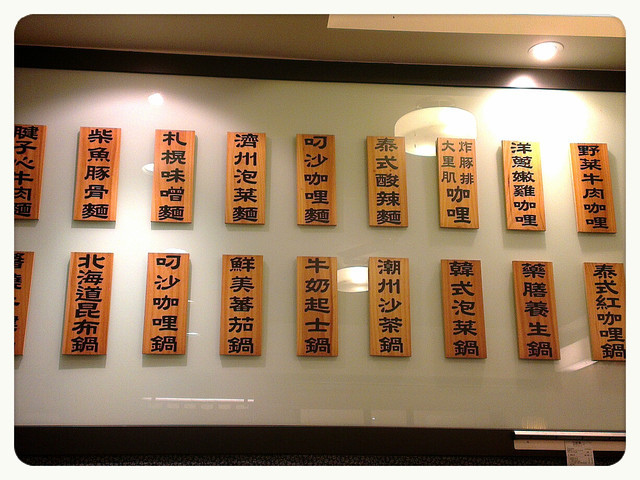 腱子心牛肉麵
柴魚豚骨麵
札幌味噌麵
濟州泡菜麵
叻沙咖哩麵
泰式酸辣麵
炸豚排
大里肌咖哩
洋蔥嫩雞咖哩
野菜牛肉咖哩
北海道昆布鍋
叻沙咖哩鍋
鮮美蕃茄鍋
牛奶起士鍋
潮州沙茶鍋
韓式泡菜鍋
藥膳養生鍋
泰式紅咖哩鍋